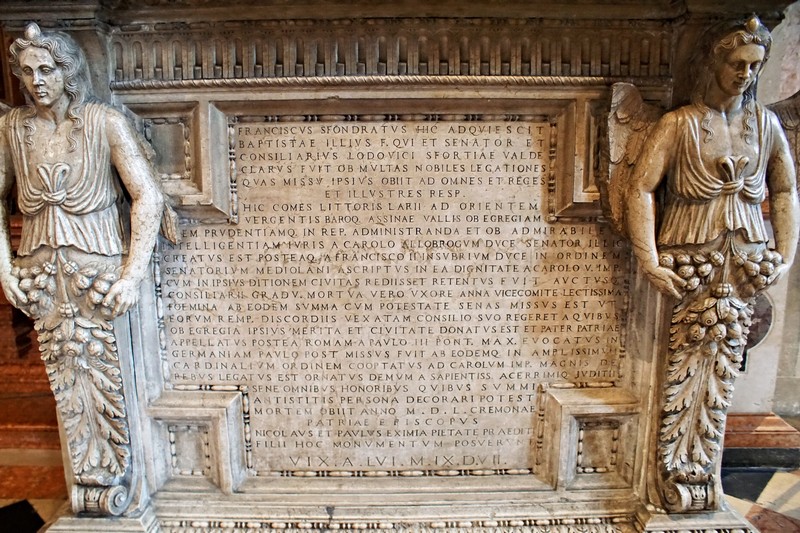 FRANCISCVS SFONDRATVS HIC ADQVIESCIT
BAPTISTAE ILLIVS F. QVI ET SENATOR ET
CONSILIARIVS LODOVICI SFORTIAE VALDE
CLARVS FVIT OB MVLTAS NOBILES LEGATIONES
QVAS MISSV IPSIVS OBIIT AD OMNES ET REGES
ET ILLVSTRES RESP.
HIC COMES LITTORIS LARII AD ORIENTEM
VERGENTIS BAROQ. ASSINAE VALLIS OB EGREGIAM
TEM PRVDENTIAMQ. IN REP. ADMINISTRANDA ET OB ADMIRABILE
TELLIGENTIAM IVRIS A CAROLO ALLOBROGVM DVCE SENATOR ILLIC
CREATVS EST POSTEAQ. A FRANCISCO II INSVBRIVM DVCE IN ORDINEM
SENATORIVM MEDIOLANI ASCRIPTVS IN EA DIGNITATE A CAROLO V. IMP.
CVM IN IPSIVS DITIONEM CIVITAS REDIISSET RETENTVS FVIT AVCTVS
CONSILIARII GRADV. MORTVA VERO VXORE ANNA VICECOMITE LECTISSIMA
FOEMINA AB EODEM SVMMA CVM POTESTATE SENAS MISSVS EST VT
EORVM REMP. DISCORDIIS VEXATAM CONSILIO SVO REGERET A QVIBVS
OB EGREGIA IPSIVS MERITA ET CIVITATE DONATVS EST ET PATER PATRIAE
APPELLATVS POSTEA ROMAM A PAVLO III PONT. MAX. EVOCATVS IN
GERMANIAM PAVLO POST MISSVS FVIT AB EODEMQ. IN AMPLISSIMVM
CARDINALIVM ORDINEM COOPTATVS AD CAROLVM IMP. MAGNIS DE
REBVS LEGATVS EST ORNATVS DEMVM A SAPIENTISS. ACERRIMIQ. IVDITII
SENE OMNIBVS HONORIBVS QVIBVS SVMMI
ANTISTITIS PERSONA DECORARI POTEST
MORTEM OBIIT ANNO M. D. L. CREMONAE
PATRIAE EPISCOPVS
NICOLAVS ET PAVLVS EXIMIA PIETATE PRAEDIT
FILII HOC MONVMENTVM POSVERVNT
VIX. A. LVI. M. IX. D. VII.